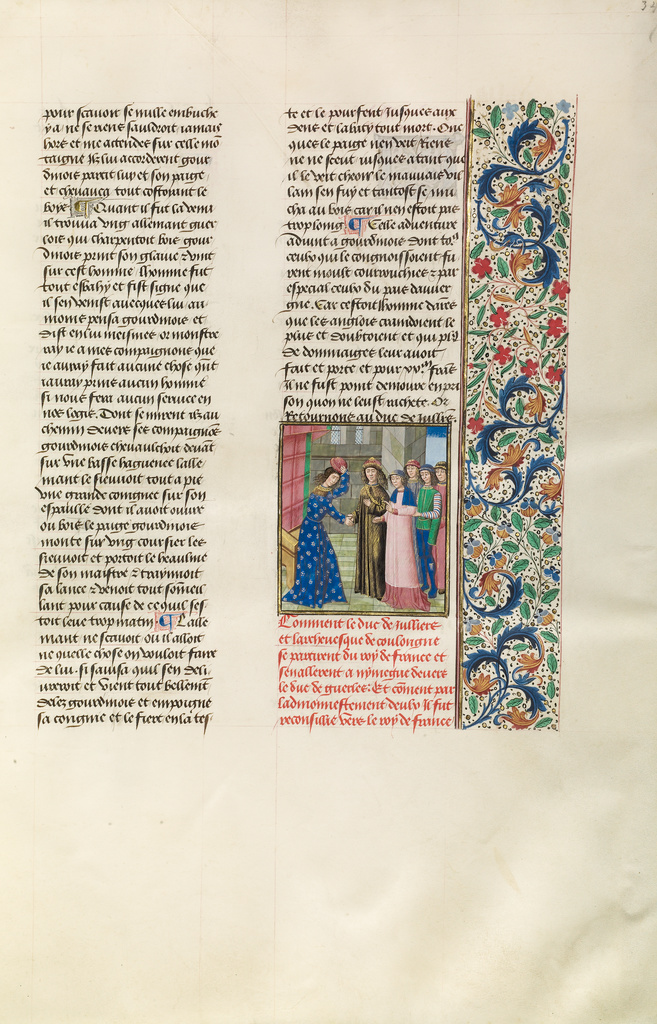 pour scavoir se nulle embuche
y a ne se riens sauldroit iamais
hors et me attendes sur celle mo
taigne Ilz lui accorderent gour
dinois partit luy et son paige
et chevaucha tout costoiant le
boys ¶ Quant il fut la venu
il trouva ung allemant guer
lois qui charpentoit bois gour
dinois print son glaive et vint
sur cest homme lhomme fut
tout esbahy et fist signe que
il sen venist avecques lui au
moins pensa gourdinois et
dist en lui meismes or monstre
ray ie a mes compaignons que
ie auray fait aucune chose qnt
iauray prins aucun homme
si nous fera aucun service en
nos logis. Dont se mirent ilz au
chemin devers ses compaignons
gourdinois chevauchoit devant
sur une basse haguenee lalle
mant le sievoit tout a pie
une grande coignee sur son
espaulle dont il avoit ouvre
ou bois le paige gourdinois
monte sur ung coursier les
sievoit et portoit le beaulme
de son maistre et traynnoit
sa lance et venoit tout someil
lant pour cause de ce quil ses
toit leve trop matin ¶ Lalle
mant ne scavoit ou il alloit
ne quelle chose on vouloit faire
de lui. si savisa quil sen deli
vreroit et vient tout bellemt
delez gourdinois et empoigne
sa coignie et le fiert en la tes
te et le pourfent Jusques aux
dens et labaty tout mort. Onc
ques le paige nen veit Riens
ne ne sceut iusques a tant que
il le veit cheoir le mauvais vil
lain sen fuy et tantost se mu
cha au bois car il nen estoit pas
trop loing ¶ Celle adventure
advint a gourdinois dont to9
ceulx qui le congnoissoient fu
rent moult courrouchies et par
especial ceulx du pais dauver
gne. Car cestoit lhomme darmes
que les anglois craindoient le
plus et doubtoient et qui pl9
de dommaiges leur avoit
fait et porte et pour xvm frans
Il ne fust point demoure en pri
son quon ne leust rachete. Or
Retournons au duc de Julliers
Comment le duc de julliers
et larchevesque de coulongne
se partirent du roy de france et
sen allerent a nymegue devers
le duc de guerles. Et coment par
ladmonnestement deulx Il fut
reconsilie vers le roy de france